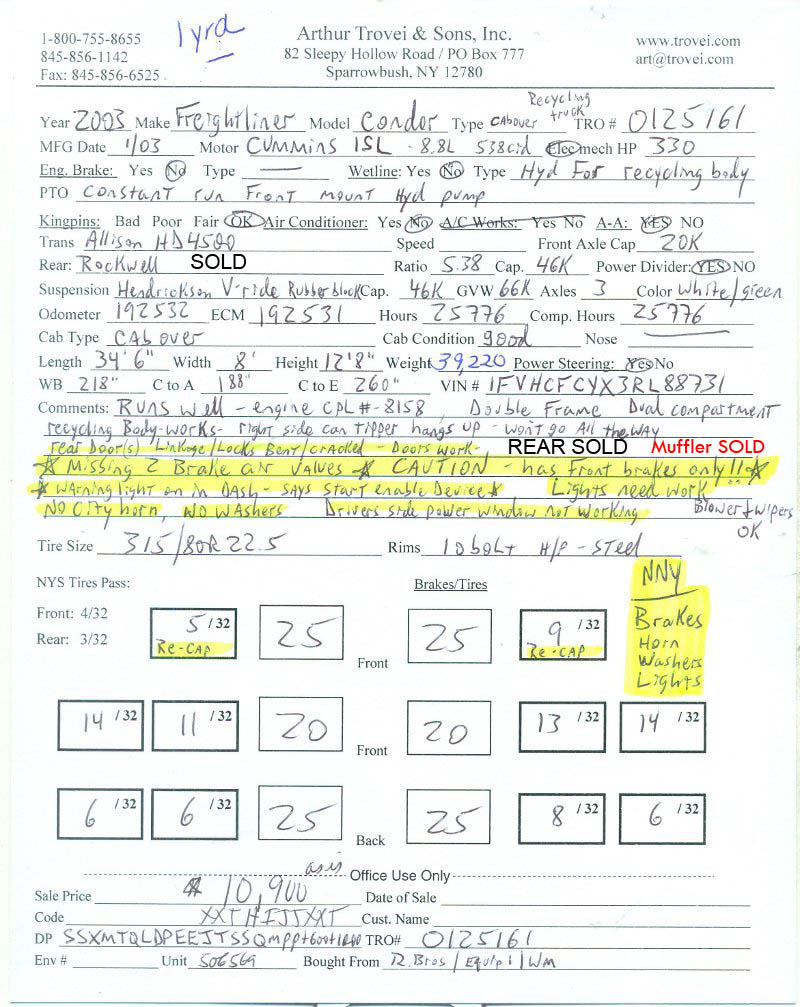 1-800-755-8655 1yrd Arthur Trovei & Sons, Inc. www.trovei.com
845-856-1142 82 Sleepy Hollow Road / PO Box 777 art@trovei.com
Fax: 845-856-6525 Sparrowbush, NY 12780
Recycling truck
Year 2003 Make Freightliner Model Condor Type CABover TRO # 0125161
MFG Date 1/03 Motor Cummins ISL - 8.8L 538cid Elec mech HP 330
Eng. Brake: Yes No Type — Wetline: Yes No Type Hyd For recycling body
PTO Constant run Front mount Hyd pump
Kingpins: Bad Poor Fair OK Air Conditioner: Yes No A/C Works: Yes No A-A: YES NO
Trans Allison HD4500 Speed Front Axle Cap 20K
Rear: Rockwell SOLD Ratio 5.38 Cap. 46K Power Divider: YES NO
Suspension Hendrickson V-ride Rubberblock Cap. 46K GVW 66K Axles 3 Color White/green
Odometer 192532 ECM 192531 Hours 25776 Comp. Hours 25776
Cab Type CAbover Cab Condition good Nose —
Length 34'6" Width 8' Height 12'8" Weight 39,220 Power Steering: Yes No
WB 218" C to A 188" C to E 260" VIN # 1FVHCFCYX3RL88731
Comments: Runs well - engine CPL #-8158 Double Frame Dual compartment
recycling Body-works- right side can tipper hangs up - won't go All the way
rear Door(s) Linkage/Locks Bent/cracked - Doors work- REAR SOLD Muffler SOLD
☆ Missing 2 Brake air valves ☆ CAUTION - has front brakes only!! ☆
☆ Warning light on in Dash - says start enable Device ☆ Lights need work
No City horn, No WASHERS Drivers side power window not working Blower + wipers OK
Tire Size 315/80R22.5 Rims 10 bolt H/P - Steel
NYS Tires Pass: Brakes/Tires NNY
Front: 4/32 Brakes
Rear: 3/32 Horn
Washers
Lights
5/32 Re-CAP 25 Front 25 9/32 Re-CAP
14/32 11/32 20 Front 20 13/32 14/32
6/32 6/32 25 Back 25 8/32 6/32
as is Office Use Only
Sale Price $10,900 Date of Sale
Code XXTHIJTXXT Cust. Name
DP TRO# 0125161
Env # Unit 506569 Bought From R.Bros / Equip 1 / WM